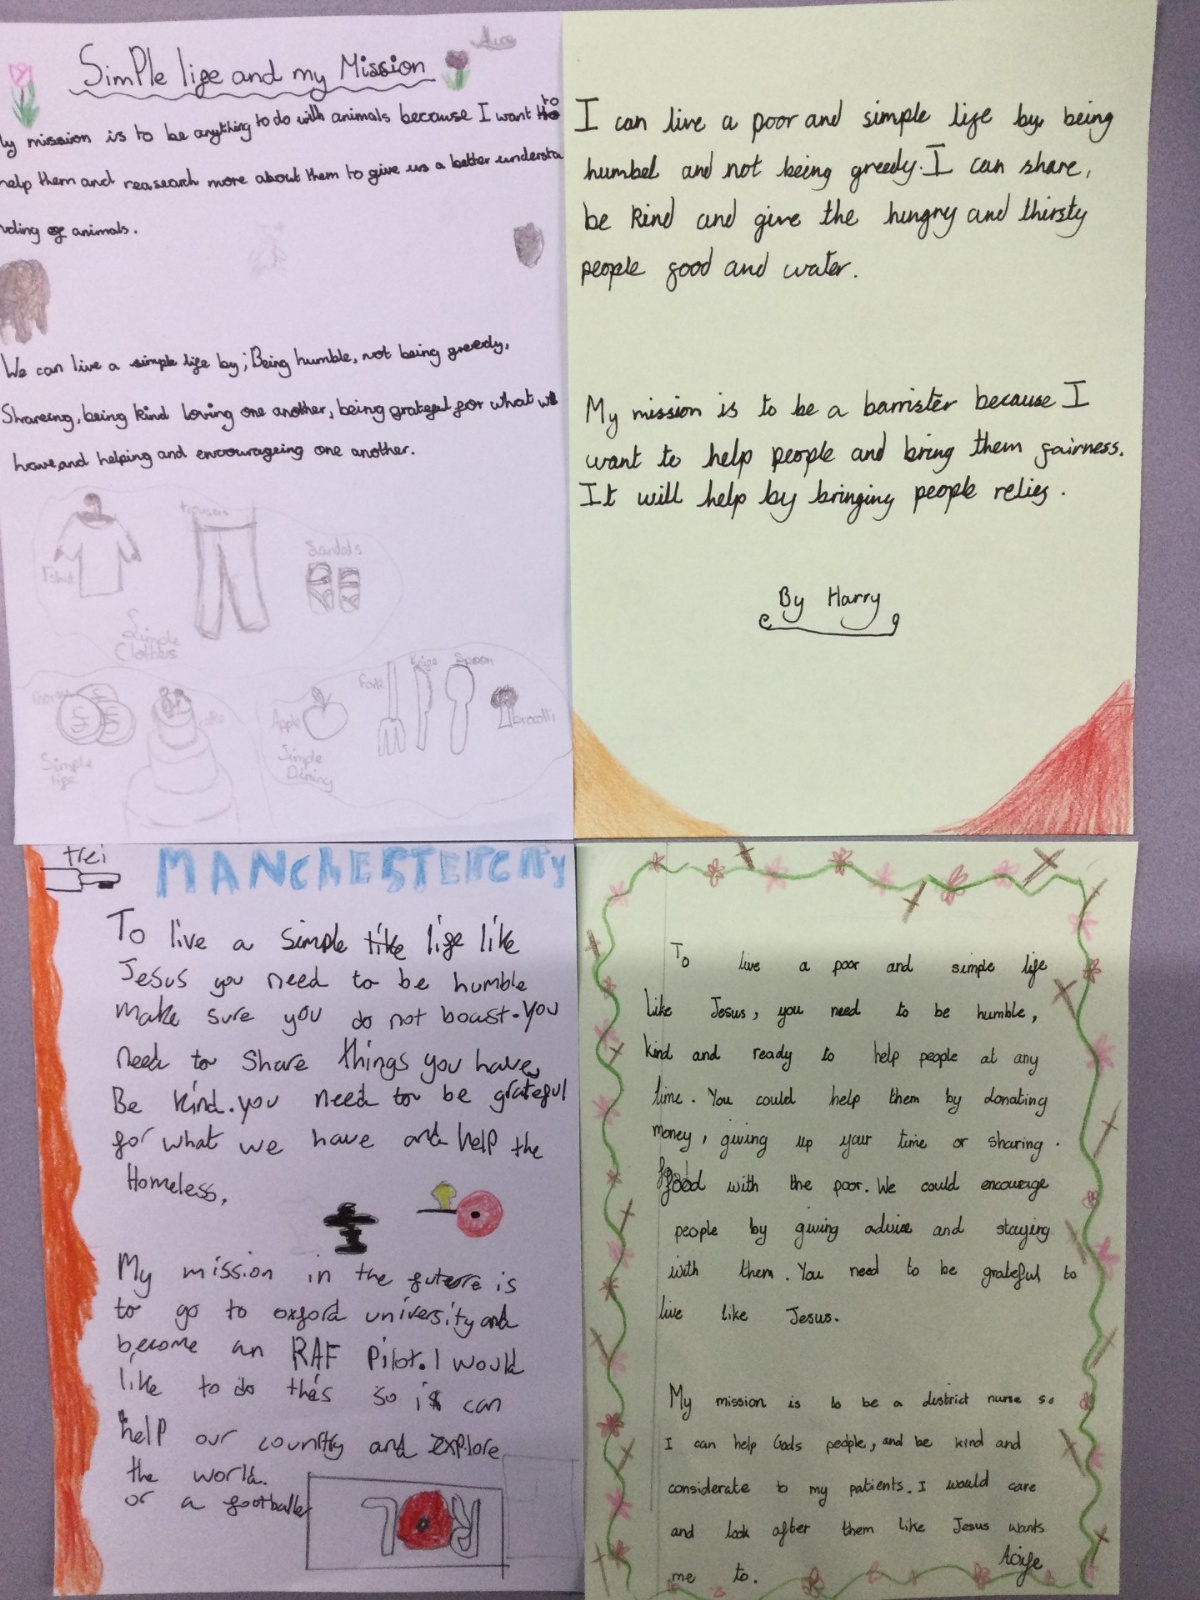 Simple life and my Mission
My mission is to be anything to do with animals because I want to
help them and reasearch more about them to give us a better understa
nding of animals.
We can live a simple life by; Being humble, not being greedy,
Shareing, being kind loving one another, being grateful for what we
have and helping and encourageing one another.
Tshirt
trousers
Sandals
Simple
Clothes
money
cake
Simple
life
Apple
Fork
Knife
Spoon
brocolli
Simple
Dining
I can live a poor and simple life by being
humbel and not being greedy. I can share,
be kind and give the hungry and thirsty
people food and water.
My mission is to be a barrister because I
want to help people and bring them fairness.
It will help by bringing people relief.
By Harry
trei
MANCHESTERCITY
To live a simple life like
Jesus you need to be humble
make sure you do not boast. you
need to share things you have,
Be kind. you need to be grateful
for what we have and help the
Homeless.
My mission in the futere is
to go to oxford university and
become an RAF Pilot. I would
like to do this so i can
help our country and explore
the world.
or a footballer
To live a poor and simple life
like Jesus, you need to be humble,
kind and ready to help people at any
time. You could help them by donating
money, giving up your time or sharing
food with the poor. We could encourage
people by giving advise and staying
with them. You need to be grateful to
live like Jesus.
My mission is to be a district nurse so
I can help Gods people, and be kind and
considerate to my patients. I would care
and look after them like Jesus wants
me to.
Aoife